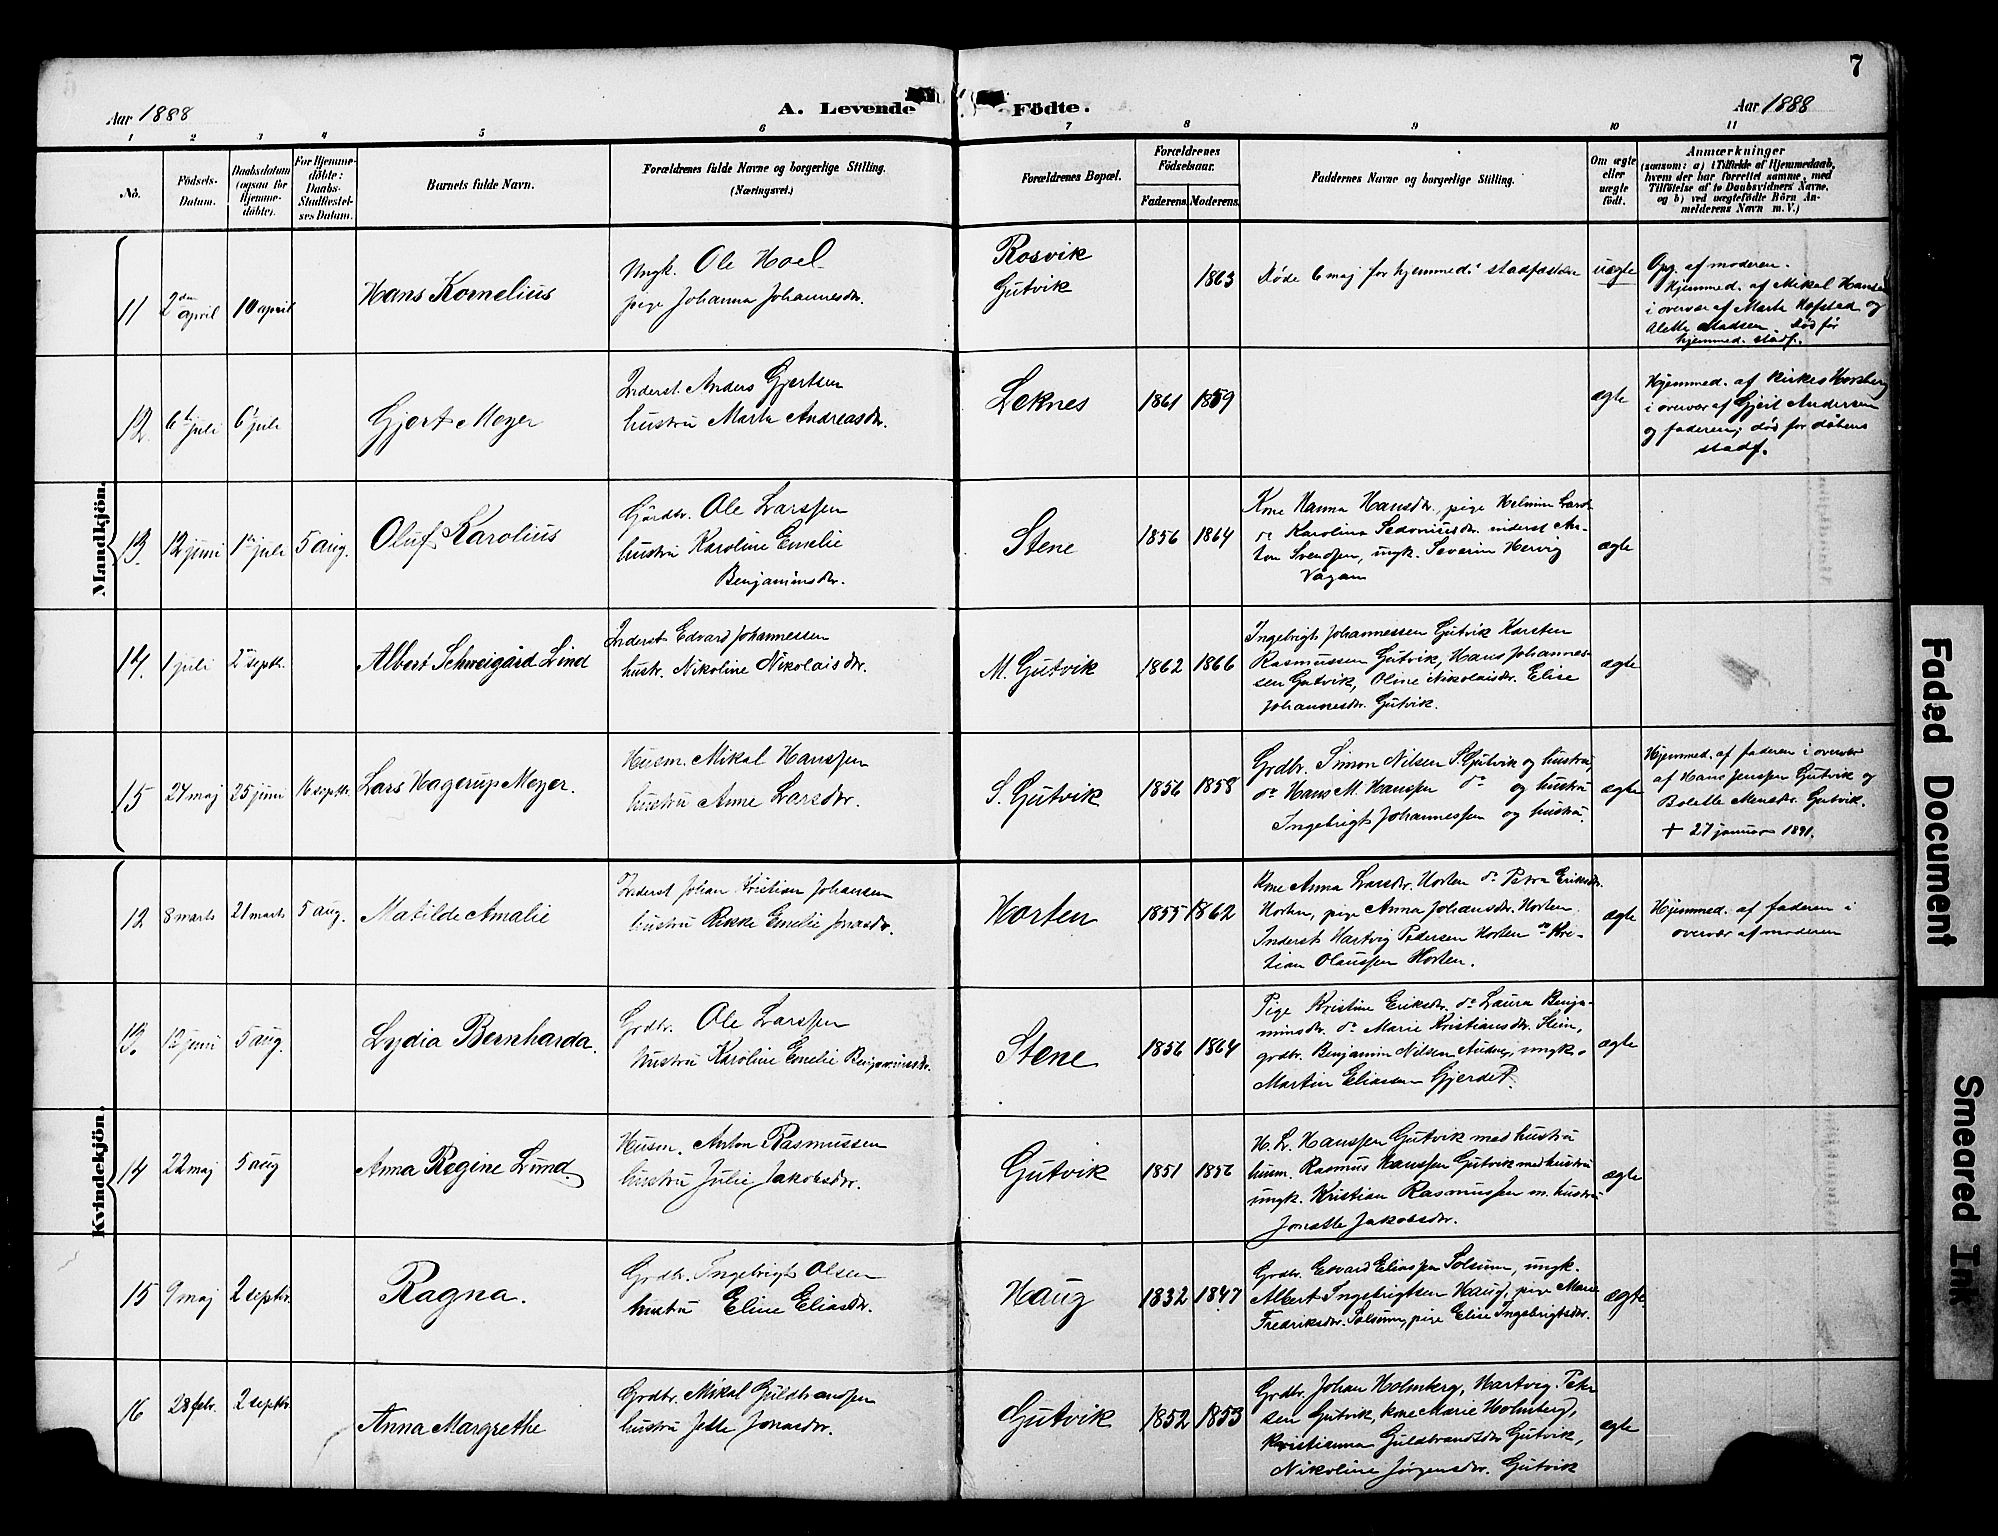 7
Aar 1888
A. Levende Födte.
Aar 1888
1 2 3 4 5 6 7 8 9 10 11
No.
Födsels-
Datum.
Daabsdatum
(ogsaa for
Hjemme-
döbte).
For Hjemme-
döbte:
Daabs-
Stadfæstel-
ses Datum.
Barnets fulde Navn.
Forældrenes fulde Navne og borgerlige Stilling.
(Næringsvei.)
Forældrenes Bopæl.
Forældrenes
Födselsaar.
Faderens. Moderens.
Faddernes Navne og borgerlige Stilling.
Om ægte
eller
uægte
födt.
Anmærkninger
(saasom: a) i Tilfælde af Hjemmedaab,
hvem der har forrettet samme, med
Tilföielse af to Daabsvidners Navne,
og b) ved uægtefödte Börn An-
melderens Navn m. V.)
Mandkjön.
11
2den april
10 april
Hans Kornelius
Ungk. Ole Hoel
pige Johanna Johannesdr.
Rosvik
Gutvik
1863
Døde 6 maj før hjemmed. stadfæstelse
uægte
Opg. af moderen.
Hjemmed. af Mikal Hansen
i overvær af Marta Hofstad og
Alette Madsen. død før
hjemmed. stadf.
12.
6te juli
6te juli
Gjert Meyer
Inderst Anders Gjertsen
hustru Marta Andreasdr.
Leknes
1861
1859
ægte
Hjemmed. af Kirkes Horsberg
i overvær af Gjert Andersen
og faderen; død før dåbens
stadf.
13.
12 juni
1ste juli
5 aug.
Oluf Karolius
Gårdbr. Ole Larssen
hustru Karoline Emelie
Benjaminsdr.
Stene
1856
1864
Kone Hanna Hansdr., pige Helmine Lars
do Karolina Sedoniusdr. inderst An-
ton Svendsen, ungk. Severin Hervig
Vågan
ægte
14.
1 juli
2 septbr.
Albert Schweigård Lind
Inderst Edvard Johannessen
hustr. Nikoline Nikolaisdr.
M. Gutvik
1862
1866
Ingebrigt Johannessen Gutvik Karsten
Rasmussen Gutvik, Hans Johannes-
sen Gutvik, Oline Nikolaisdr. Elise
Johannesdr. Gutvik.
ægte
15
24 maj
25 juni
16 septbr.
Lars Hagerup Meyer.
Husm. Mikal Hanssen
hustru Anne Larsdr.
S. Gutvik
1856
1858
Grdbr. Simon Nilsen S. Gutvik og hustru,
do Hans M. Hanssen do og hustru
Ingebrigt Johannessen og hustru.
ægte
Hjemmed. af faderen i overvær
af Hans Jenssen Gutvik og
Bolette Monsdr. Gutvik.
+ 27 januar 1891.
Kvindekjön.
12
8 marts
21 marts
5 aug.
Matilde Amalie
Inderst Johan Kristian Johansen
hustru Rikke Emelie Jonasdr.
Horten
1855
1862
Kone Anna Larsdr. Horten do Petra Eriksdr.
Horten, pige Anna Johansdr. Horten
Inderst Hartvig Pedersen Horten do Kri-
tian Olaussen Horten.
ægte
Hjemmed. af faderen i
overvær af moderen
13.
12 juni
5 aug.
Lydia Bernharda.
Grdbr. Ole Larssen
hustru Karoline Emelie Benjaminsdr.
Stene
1856
1864
Pige Kristine Eriksdr. do Laura Benja-
minsdr. do Marie Kristiansdr. Stein,
grdbr. Benjamin Nilsen, ungk.
Martin Eliassen Gjerdet.
ægte
14
22 maj
5 aug
Anna Regine Lund.
Husm. Anton Rasmussen
hustru Julie Jakobsdr.
Gutvik
1851
1856
H. L. Hanssen Gutvik med hustru
husm. Rasmus Hanssen Gutvik med hustru
ungk. Kristian Rasmussen m. hustru
Jonette Jakobsdr.
ægte
15
9 maj
2 septbr.
Ragna.
Grdbr. Ingebrigt Olsen
hustru Eline Eliasdr.
Haug
1832
1847
Grdbr. Edvard Eliassen Solsum, ungk.
Albert Ingebrigtsen Haug, pige Marie
Fredriksdr. Solsum, pige Elise Ingebrigtsdr.
ægte
16
28 febr.
2 septbr.
Anna Margrethe
Grdbr. Mikal Guldbranssen
hustru Jette Jonasdr.
Gutvik
1852
1853
Grdbr. Johan Holmberg, Hartvig Peter
sen Gutvik, kone Marie Holmberg,
Kristianna Guldbrandsdr Gutvik,
Nikoline Jørgensdr. Gutvik
ægte
Faded Document
Smeared Ink